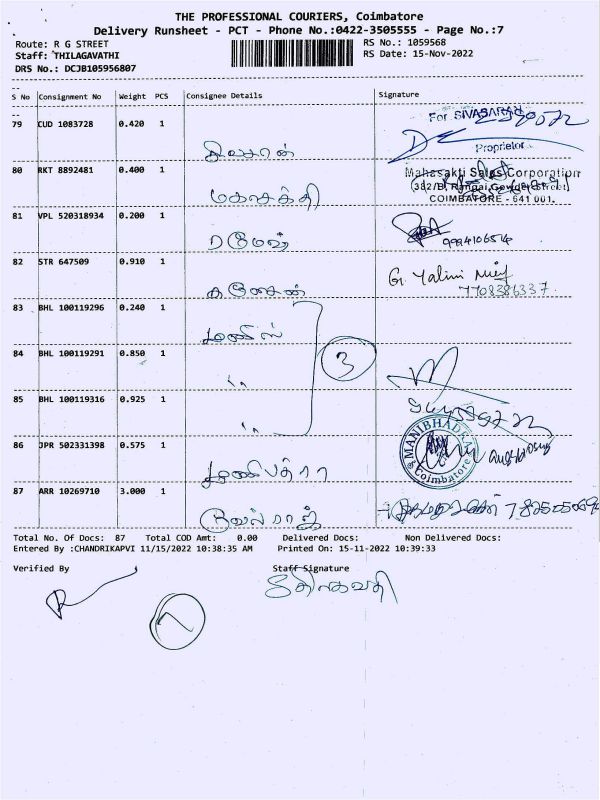 THE PROFESSIONAL COURIERS, Coimbatore
Delivery Runsheet - PCT - Phone No.:0422-3505555 - Page No.:7
Route: R G STREET RS No.: 1059568
Staff: THILAGAVATHI RS Date: 15-Nov-2022
DRS No.: DCJB105956807
S No Consignment No Weight PCS Consignee Details Signature
79 CUD 1083728 0.420 1
For SIVASARAN
Proprietor
80 RKT 8892481 0.400 1 மகாசக்தி
Mahasakti Sales Corporation
(382/B, Rangai Gowder Street)
COIMBATORE - 641 001.
81 VPL 520318934 0.200 1 ரமேஷ்
82 STR 647509 0.910 1 கணேசன் G. Yalini
7708386337
83 BHL 100119296 0.240 1 மணிஸ்
84 BHL 100119291 0.850 1 "
3
85 BHL 100119316 0.925 1 "
86 JPR 502331398 0.575 1 மணிபத்ரா MANIBHADRA Coimbatore
87 ARR 10269710 3.000 1
Total No. Of Docs: 87 Total COD Amt: 0.00 Delivered Docs: Non Delivered Docs:
Entered By :CHANDRIKAPVI 11/15/2022 10:38:35 AM Printed On: 15-11-2022 10:39:33
Verified By Staff Signature
திலகவதி
7